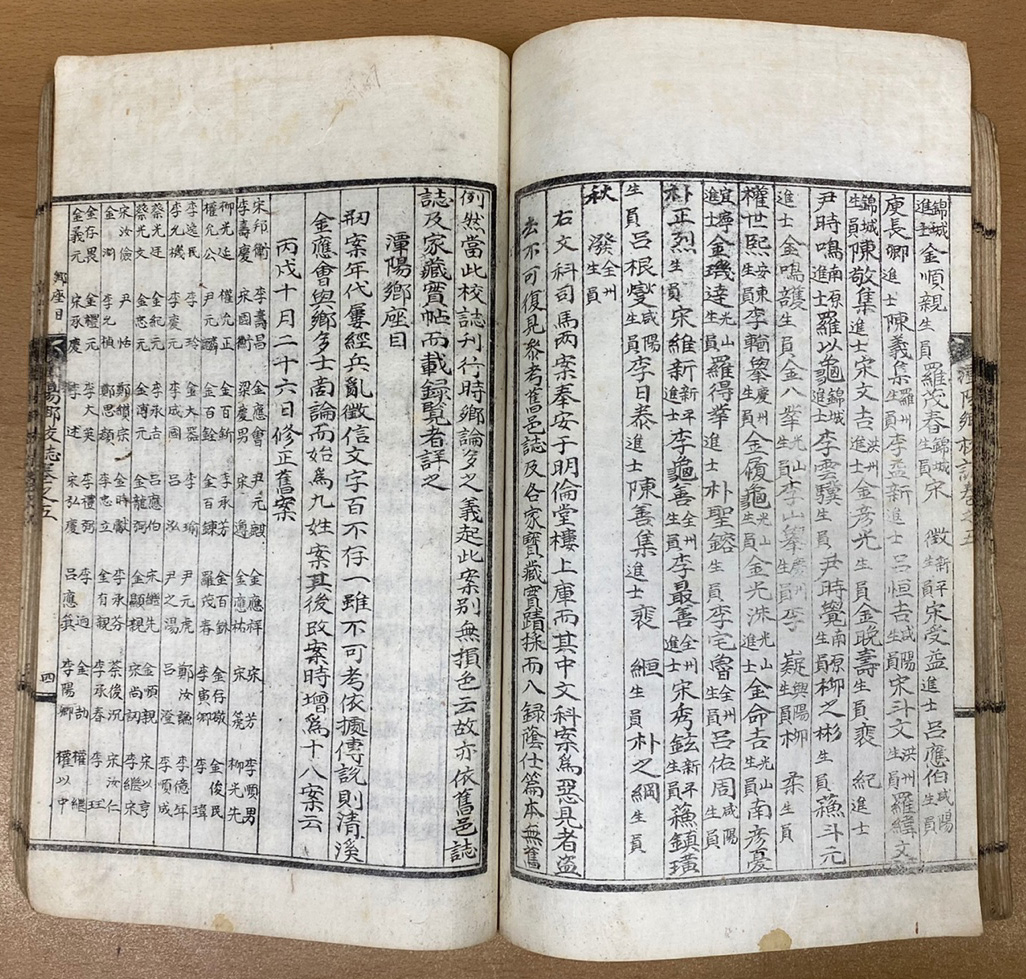 錦城進士金順親生員羅茂春錦城生員宋 徵新平生員宋受益進士呂應伯咸陽生員
庾長卿進士陳義集羅州生員李亟新進士呂恒吉咸陽生員宋斗文洪州生員羅緯文
錦城生員陳敬集進士宋文吉洪州進士金彦光生員金晚壽生員裵 紀進士
尹時鳴南原進士羅以龜錦城進士李雲驥生員尹時覺南原生員柳之彬生員蘓斗元
進士金鳴鶴生員金八擧光山生員李山擧慶州生員李 嶷興陽生員柳 柔生員
權世熙安東生員李輪擧慶州生員金履龜光山生員金光洙光山進士金命吉光山生員南彦憂
宜寧進士金璣達光山生員羅得華進士朴聖鎔生員李宅魯全州生員呂佑周咸陽生員
朴正烈生員宋維新新平進士李龜善全州生員李最善全州進士宋秀鉉新平生員蘓鎮璜
生員呂根燮咸陽生員李日泰進士陳善集進士裵 絙生員朴之綱生員
秋 潑全州生員
右文科司馬兩案奉安于明倫堂樓上庫而其中文科案爲惡見者盜
去不可復見叅考舊邑誌及各家寶藏實蹟採而入録蔭仕篇本無舊
潭陽鄉校誌卷之五
例然當此校誌刊行時鄉論多之義起此案別無損色云故亦依舊邑誌
誌及家藏實帖而載録覽者詳之
潭陽鄉座目
刱案年代屢經兵亂徵信文字百不存一雖不可考依攄傳説則清溪
金應會與鄉多士啇論而始爲九姓案其後改案時增爲十八案云
丙戌十月二十六日修正舊案
宋印衡 李壽昌 金應會 尹元凱 金應祥 宋 芳 李順男
李壽慶 宋國衡 梁慶男 宋 遵 金應祐 宋 箎 柳光先
柳光延 權允正 金百鈁 李承芳 金百鉌 金存敬 金俊民
權允公 尹元麟 金百銓 金百鍊 羅茂春 李寅卿 李 瑋
李逸民 李 玲 金大器 李 瑜 尹元虎 鄭汝諴 李億年
李光機 李慶元 李成國 呂 泓 尹之湯 呂 澄 李順成
蔡光廷 金紀元 李承吉 呂應伯 宋繼先 金順親 宋以亨
蔡光文 金忠元 金溥元 金龍弼 金顯親 宋尚訒 李繼宋
宋汝儉 尹 怗 鄭纘宗 金時獻 李承芬 蔡俊沉 宋汝仁
金 澗 李光楨 鄭思顔 李忠立 金有親 李承春 李 珏
金存畏 金禮元 李大英 李禮弼 李 適 金 劼 權 繼
金義元 宋承慶 李 述 宋弘慶 呂應箕 李陽卿 權以中
鄉座目
四